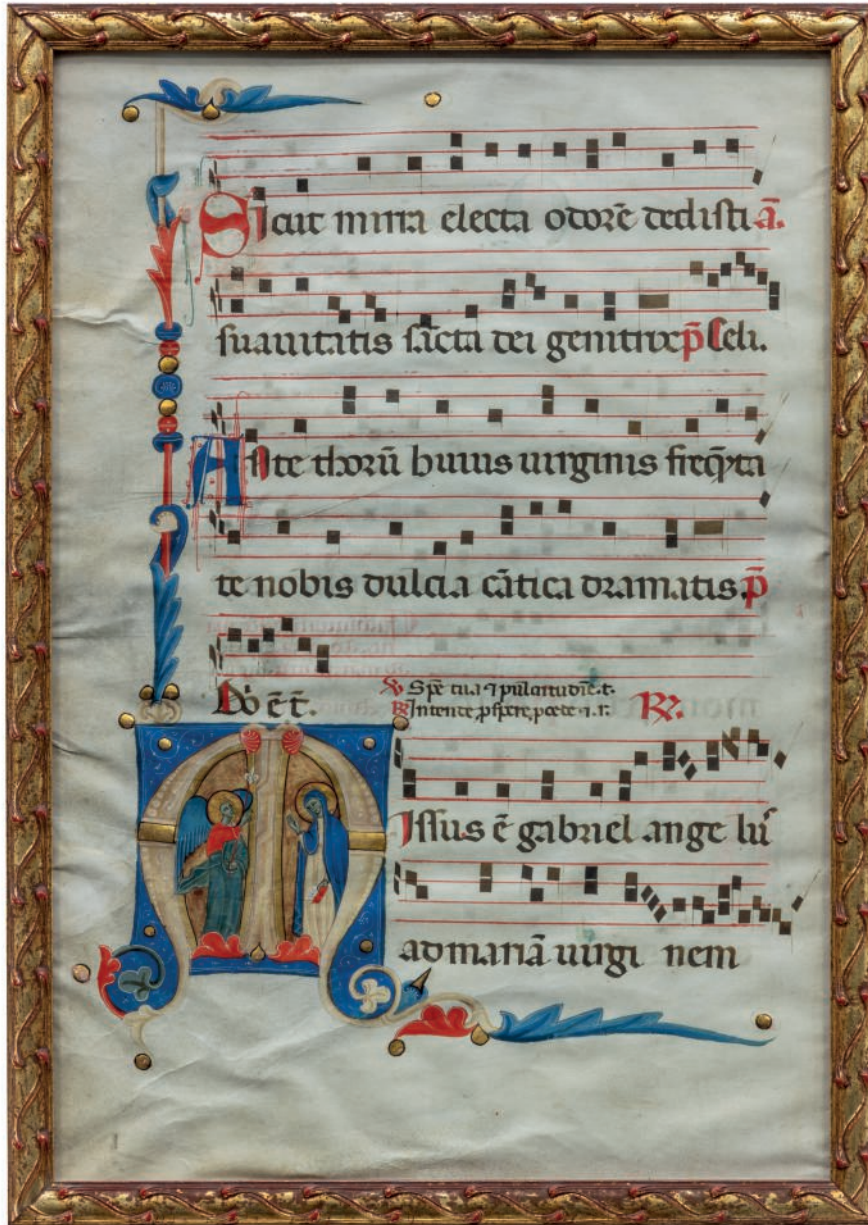 Sicut mirra electa odorē dedisti ā.
suauitatis sācta dei genitrix p̄ Celi.
Ante thorū huius uirginis freq̄ta
te nobis dulcia cātica dramatis. p̄
Dō ē t̄.
℣ Spē tua ⁊ pulcritudīe. t.
℟ Intende, ꝓspere, ꝓcede. ⁊. r. ℟.
Missus ē gabriel ange lus
ad mariā uirgi nem